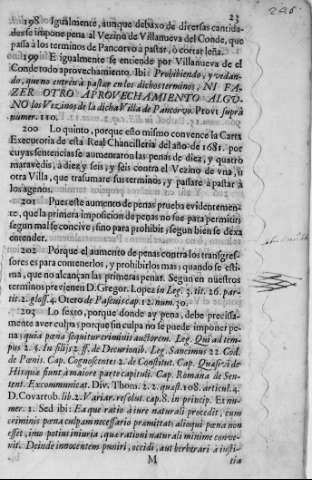 23
198 Igualmente, aunque debaxo de diversas cantida-
des se impone pena al Vezino de Villanueva del Conde, que
passa à los terminos de Pancorvo à pastar, ò cortar leña.
199 E igualmente se entiende por Villanueva de el
Conde todo aprovechamiento. Ibi: Prohibiendo, y vedan-
do, que no entrèn à pastar en los dichos terminos, NI FA-
ZER OTRO APROVECHAMIENTO ALGU-
NO los Vezinos de la dicha Villa de Pancorvo. Provi suprà
numer. 110.
200 Lo quinto, porque esto mismo convence la Carta
Executoria de esta Real Chancilleria del año de 1681. por
cuyas sentencias se aumentaron las penas de diez, y quatro
maravedis, à diez y seis, y seis contra el Vezino de vna, ù
otra Villa, que trasumare sus terminos, y passare à pastar à
los agenos.
201 Pues este aumento de penas prueba evidentemen-
te, que la primera imposicion de penas no fue para permitir;
segun mal se concive; sino para prohibir; segun bien se dexa
entender.
202 Porque el aumento de penas contra los transgres-
sores es para contenerlos, y prohibirlos mas; quando se esti-
ma, que no alcançan las primeras penas. Segun en nuestros
terminos previenen D. Gregor. Lopez in Leg. 3. tit. 26. par-
tit. 2. gloss. 4. Otero de Pascuis cap. 12. num. 30.
203 Lo sexto, porque donde ay pena, debe precissa-
mente aver culpa; porque sin culpa no se puede imponer pe-
na: quia pœna sequitur criminis auctorem. Leg. Qui ad tem-
pus 2. §. In filijs 2. ff. de Decurionib. Leg. Sancimus 22. Cod.
de Pœnis. Cap. Cognoscentes 2. de Constitut. Cap. Quæsivit de
Hisquæ fiunt à maiore parte capituli. Cap. Romana de Sen-
tent. Excommunicat. Div. Thom. 2. 2. quæst. 108. articul. 4.
D. Covarrub. lib. 2. Variar. resolut. cap. 8. in princip. Et nu-
mer. 1. Sed ibi: Ea que ratio à iure naturali procedit, cum
criminis pœna culpam necessario præmittat: alioqui pœna non
esset, imo potius iniuria, quæ rationi naturali minime conve-
nit. Deinde innocentem puniri, occidi, aut berberari à iusti-
M tia